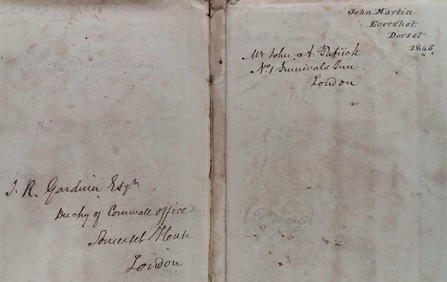 J. R. Gardiner Esqr
Duchy of Cornwall office
Somerset House
London
John Martin
Evershot
Dorset
1845.
Mr John A. Patrick
No 1 Furnivals Inn
London